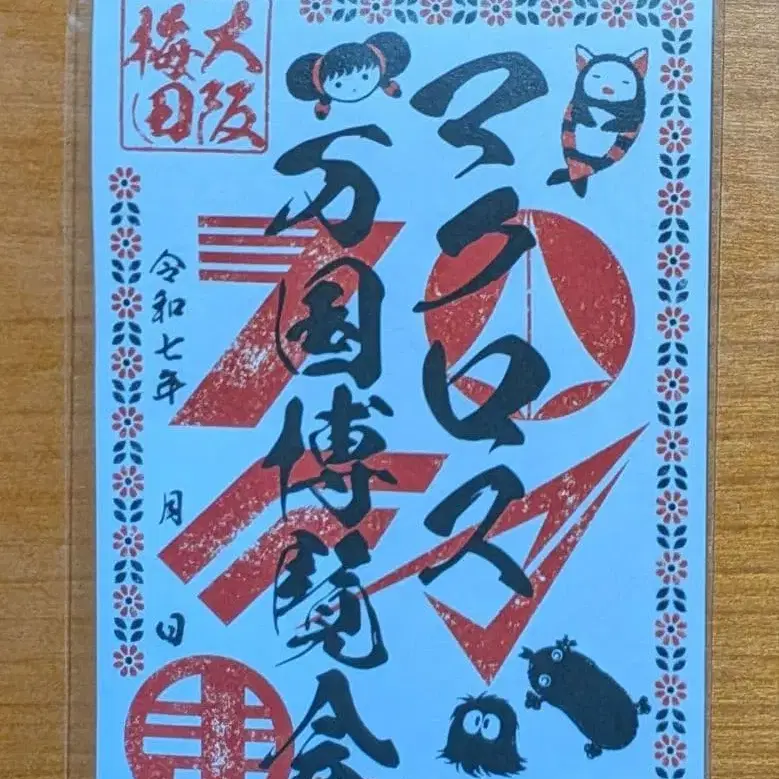 マクロス
万国博覧会
大阪
梅田
令和七年
月
日